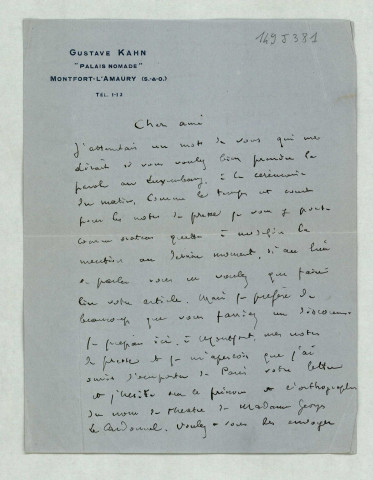 149 J 381
GUSTAVE KAHN
"PALAIS NOMADE"
MONTFORT-L'AMAURY (S.-&-O.)
TÉL. 1-12
Cher ami
J'attendais un mot de vous qui me
dirait si vous voulez bien prendre la
parole au Luxembourg, à la cérémonie
du matin. Comme le temps est court
pour les notes de presse je vous y porte
comme orateur quitte à modifier la
mention au dernier moment, si au lieu
de parler vous ne voulez que faire
lire votre article. Mais je préfère de
beaucoup que vous fassiez un discours
Je prépare ici, à mes notes
de presse et je m'aperçois que j'ai
omis d'emporter de Paris votre lettre
et j'hésite sur le prénom et l'orthographe
du nom de théâtre de Madame Georges
Le Cardonnel. Voulez-vous les envoyer